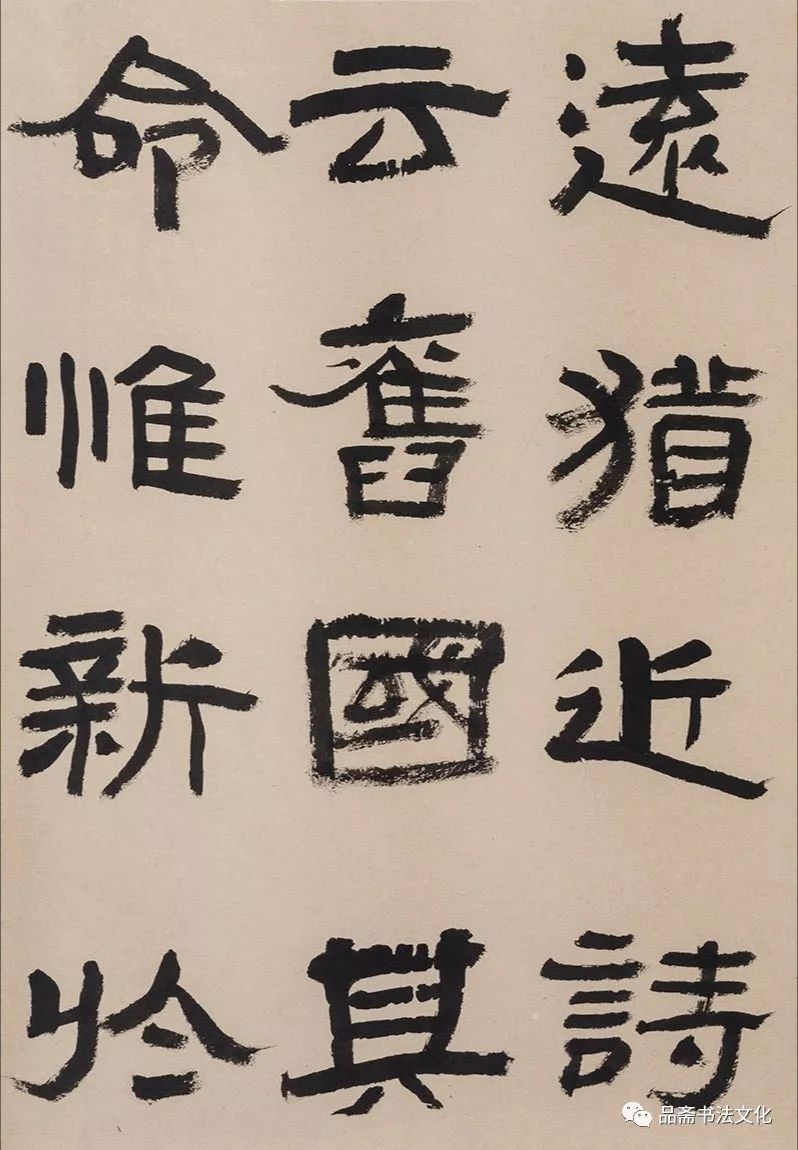 遠猎近詩
云舊國其
命惟新於
品斋书法文化